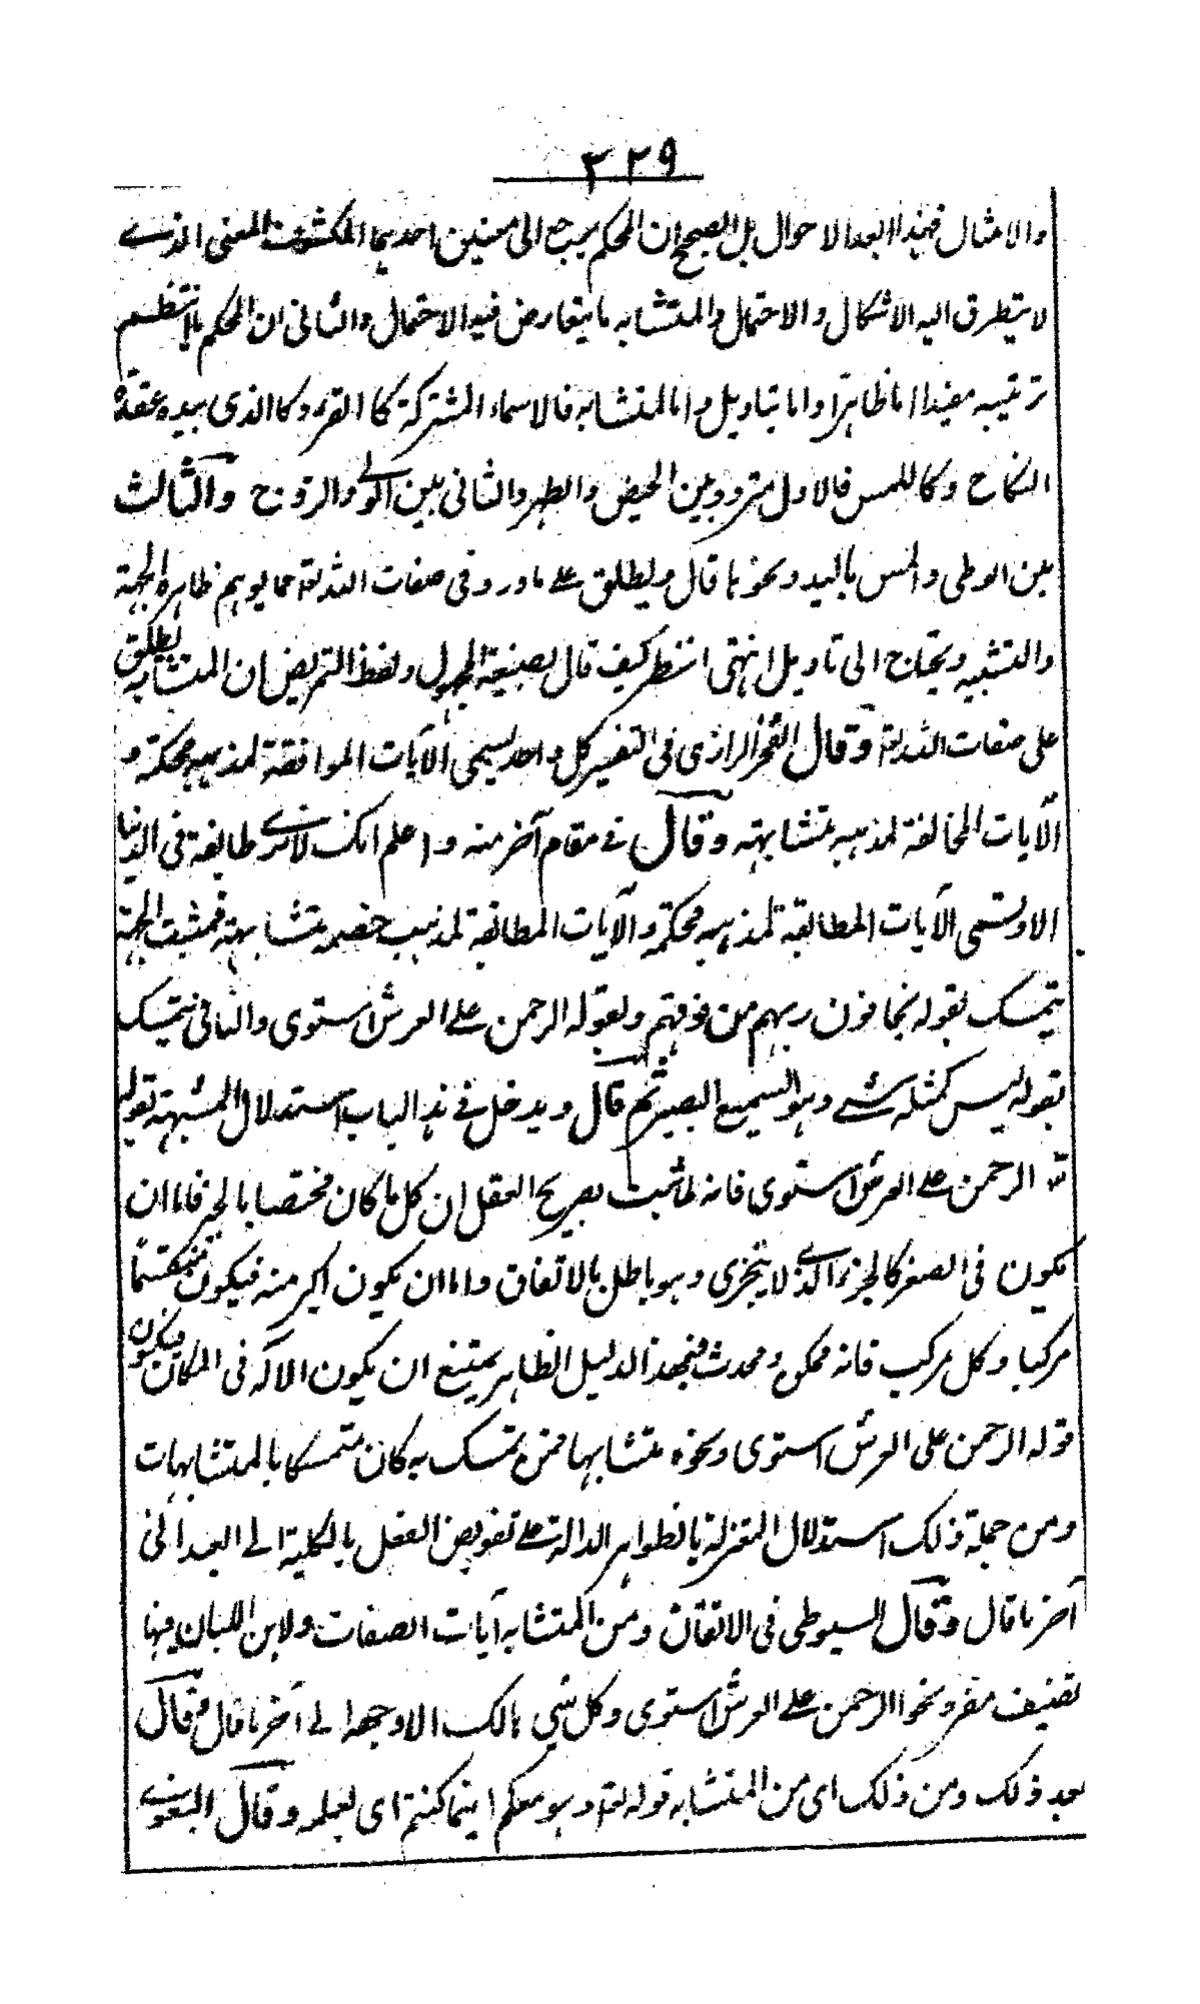 ٣٢٩
والامثال فهذا ابعد الاحوال بل الصحيح ان المحكم يرجع الى معنيين احدهما المكشوف المعنى الذے
لا يتطرق اليه الاشكال والاحتمال والمتشابه ما يتعارض فيه الاحتمال والثانى ان المحكم ما انتظم
ترتيبه مفيدا اما ظاهرا واما بتاويل واما المتشابه فالاسماء المشتركة كالقرء وكالذى بيده عقدة
النكاح وكاللمس فالاول متردد بين الحيض والطهر والثانى بين الولے والزوج والثالث
بين الوطى والمس باليد ونحوها قال ويطلق علے ماورد فى صفات الله تعہ مما يوهم ظاهره الجهة
والتشبيه ويحتاج الى تاويل انتهى انظر كيف قال بصيغة المجهول ولفظ التمريض ان المتشابه يطلق
على صفات الله تعہ وقال الفخر الرازى فى التفسير كل واحد يسمى الآيات الموافقة لمذهبه محكمة و
الآيات المخالفة لمذهبه متشابهة وقال فے مقام آخر منه واعلم انك لا ترے طايفة فى الدنيا
الا وتسمى الآيات المطابقة لمذهبه محكمة والآيات المطابقة لمذهب خصمه متشابهة فمثبت الجهة
يتمسك بقوله يخافون ربهم من فوقهم وبقوله الرحمن علے العرش استوى والنافى يتمسك
بقوله ليس كمثله شے وهو السميع البصير ثم قال ويدخل فے هذا الباب استدلال المشبهة بقوله
تعہ الرحمن علے العرش استوى فانه لما ثبت بصريح العقل ان كل ما كان مختصا بالحيز فاما ان
يكون فى الصغر كالجزء الذے لا يتجزى وهو باطل بالاتفاق واما ان يكون اكبر منه فيكون منقسما
مركبا وكل مركب فانه ممكن ومحدث فبهذا الدليل الظاهر يمتنع ان يكون الاله فى المكان فيكون
قوله الرحمن على العرش استوى ونحوه متشابها فمن تمسك به كان متمسكا بالمتشابهات
ومن جملة ذلك استدلال المعتزلة بالظواهر الدالة علے تفويض الفعل بالكلية الے العبد الى
آخر ما قال وقال السيوطى فى الاتقان ومن المتشابه آيات الصفات ولابن اللبان فيها
تصنيف مفرد نحو الرحمن علے العرش استوى وكل شى هالك الا وجهه الے آخر ما قال وقال
بعد ذلك ومن ذلك اى من المتشابه قوله تعہ وهو معكم اينما كنتم اى بعلمه وقال البغوے